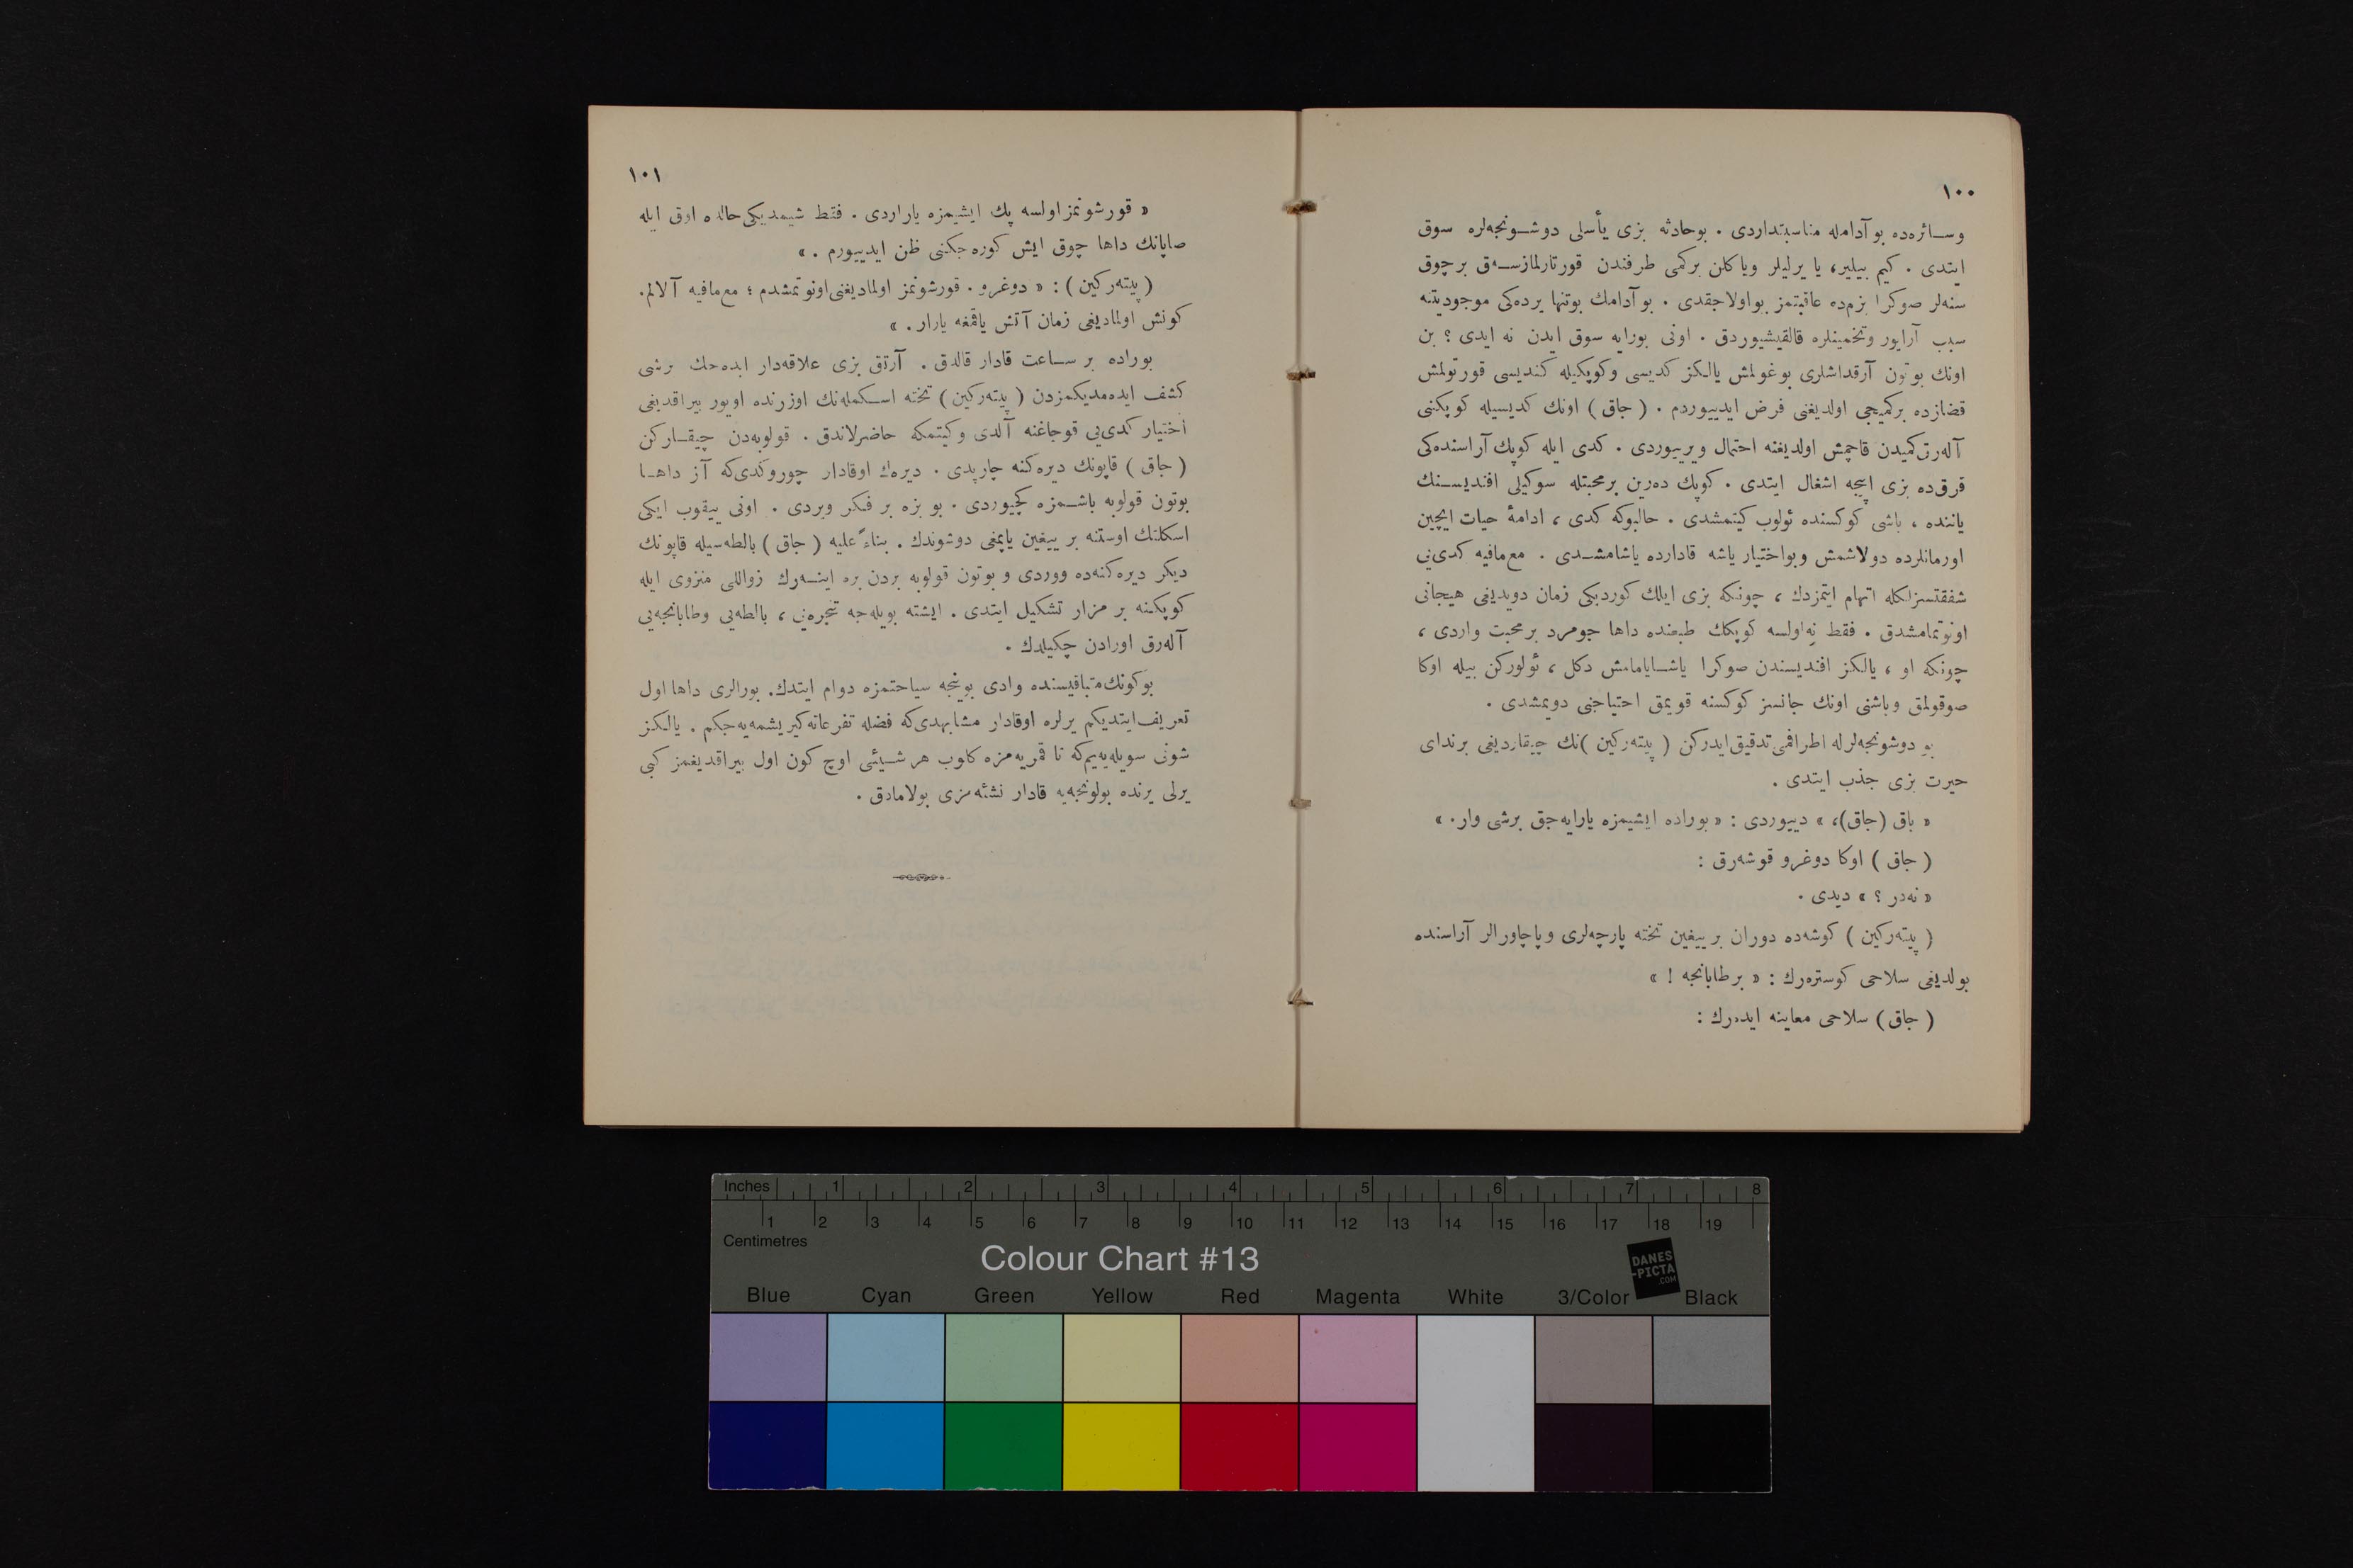 ١٠٠
وسـائرەدە بو آدامله مناسبتداردی . بوحادثه بزی یأسلی دوشـونجەلره سوق
ایتدی . کیم بیلیر، یا یرلیلر ویا کلن برکمی طرفندن قورتارلمازسـەق برچوق
سنەلر صوکرا بزمدە عاقبتمز بواولاجقدی . بو آدامك بوتنها یردەکی موجودیتنه
سبب آرایور وتخمینلره قالقیشیوردق . اونی بورایه سوق ایدن نه ایدی ؟ بن
اونك بوتون آرقداشلری بوغولمش یالکز کدیسی وکوپکیله کندیسی قورتولمش
قضازده برکمیجی اولدیغنی فرض ایدییوردم . ( جاق ) اونك کدیسیله کوپکنی
آلەرق کمیدن قاچمش اولدیغنه احتمال ویرییوردی . کدی ایله کوپك آراسندەکی
فرق دە بزی اییجه اشغال ایتدی . کوپك دەرین برمحبتله سوکیلی افندیسـنك
یاننده ، باشی کوکسنده ئولوب کیتمشدی . حالبوکه کدی ، ادامۀ حیات ایچین
اورمانلرده دولاشمش وبواختیار یاشه قادارده یاشامشـدی . مع مافیه کدی یی
شفقتسزلکله اتهام ایتمزدك ، چونکه بزی ایلك کوردیکی زمان دویدیغی هیجانی
اونوتمامشدق . فقط نه اولسه کوپکك طبعنده داها جومرد برمحبت واردی ،
چونکه او ، یالکز افندیسندن صوکرا یاشـایامامش دکل ، ئولورکن بیله اوکا
صوقولمق وباشنی اونك جانسز کوکسنه قویمق احتیاجنی دویمشدی .
بو دوشونجەلرله اطرافمی تدقیق ایدرکن ( پیتەرکین ) نك چیقاردیغی برندای
حیرت بزی جذب ایتدی .
« باق (جاق)، » دییوردی : « بوراده ایشیمزه یارایەجق برشی وار. »
( جاق ) اوکا دوغرو قوشەرق :
« نەدر ؟ » دیدی .
( پیتەرکین ) کوشەده دوران بر ییغین تخته پارچەلری وپاچاورالر آراسنده
بولدیغی سلاحی کوسترەرك : « برطابانجه ! »
( جاق ) سلاحی معاینه ایدەرك :
١٠١
« قورشونمز اولسه پك ایشیمزه یاراردی . فقط شیمدیکی حالده اوق ایله
صاپانك داها چوق ایش کورەجکنی ظن ایدییورم . »
( پیتەرکین ) : « دوغرو . قورشونمز اولمادیغنی اونوتمشدم ؛ مع مافیه آلالم.
کونش اولمادیغی زمان آتش یاقمغه یارار . »
بوراده بر سـاعت قادار قالدق . آرتق بزی علاقەدار ایدەجك برشی
کشف ایدەمدیکمزدن ( پیتەرکین ) تخته اسـکملەنك اوزرنده اویور بیراقدیغی
اختیار کدی یی قوجاغنه آلدی وکیتمکه حاضرلاندق . قولوبەدن چیقـارکن
( جاق ) قاپونك دیرەکنه چارپدی . دیرەك اوقادار چوروکدی که آز داهـا
بوتون قولوبه باشـمزه کچیوردی . بو بزه بر فکر ویردی . اونی ییقوب ایکی
اسکلتك اوستنه بر ییغین یاپمغی دوشوندك . بناءً علیه ( جاق ) بالطەسیله قاپونك
دیکر دیرەکنەده ووردی و بوتون قولوبه بردن بره اینـەرك زواللی منزوی ایله
کوپکنه بر مزار تشکیل ایتدی . ایشته بویلەجه تنجرەیی ، بالطەیی وطابانجەیی
آلەرق اورادن چکیلدك .
بوکونك متباقیسنده وادی بوینجه سیاحتمزه دوام ایتدك. بورالری داها اول
تعریف ایتدیکم یرلره اوقادار مشابهدی که فضله تفرعاته کیریشمەیەجکم . یالکز
شونی سویلەیەیم که تا قمریەمزه کلوب هر شـیئی اوچ کون اول بیراقدیغمز کبی
یرلی یرنده بولونجەیه قادار نشئەمزی بولامادق .